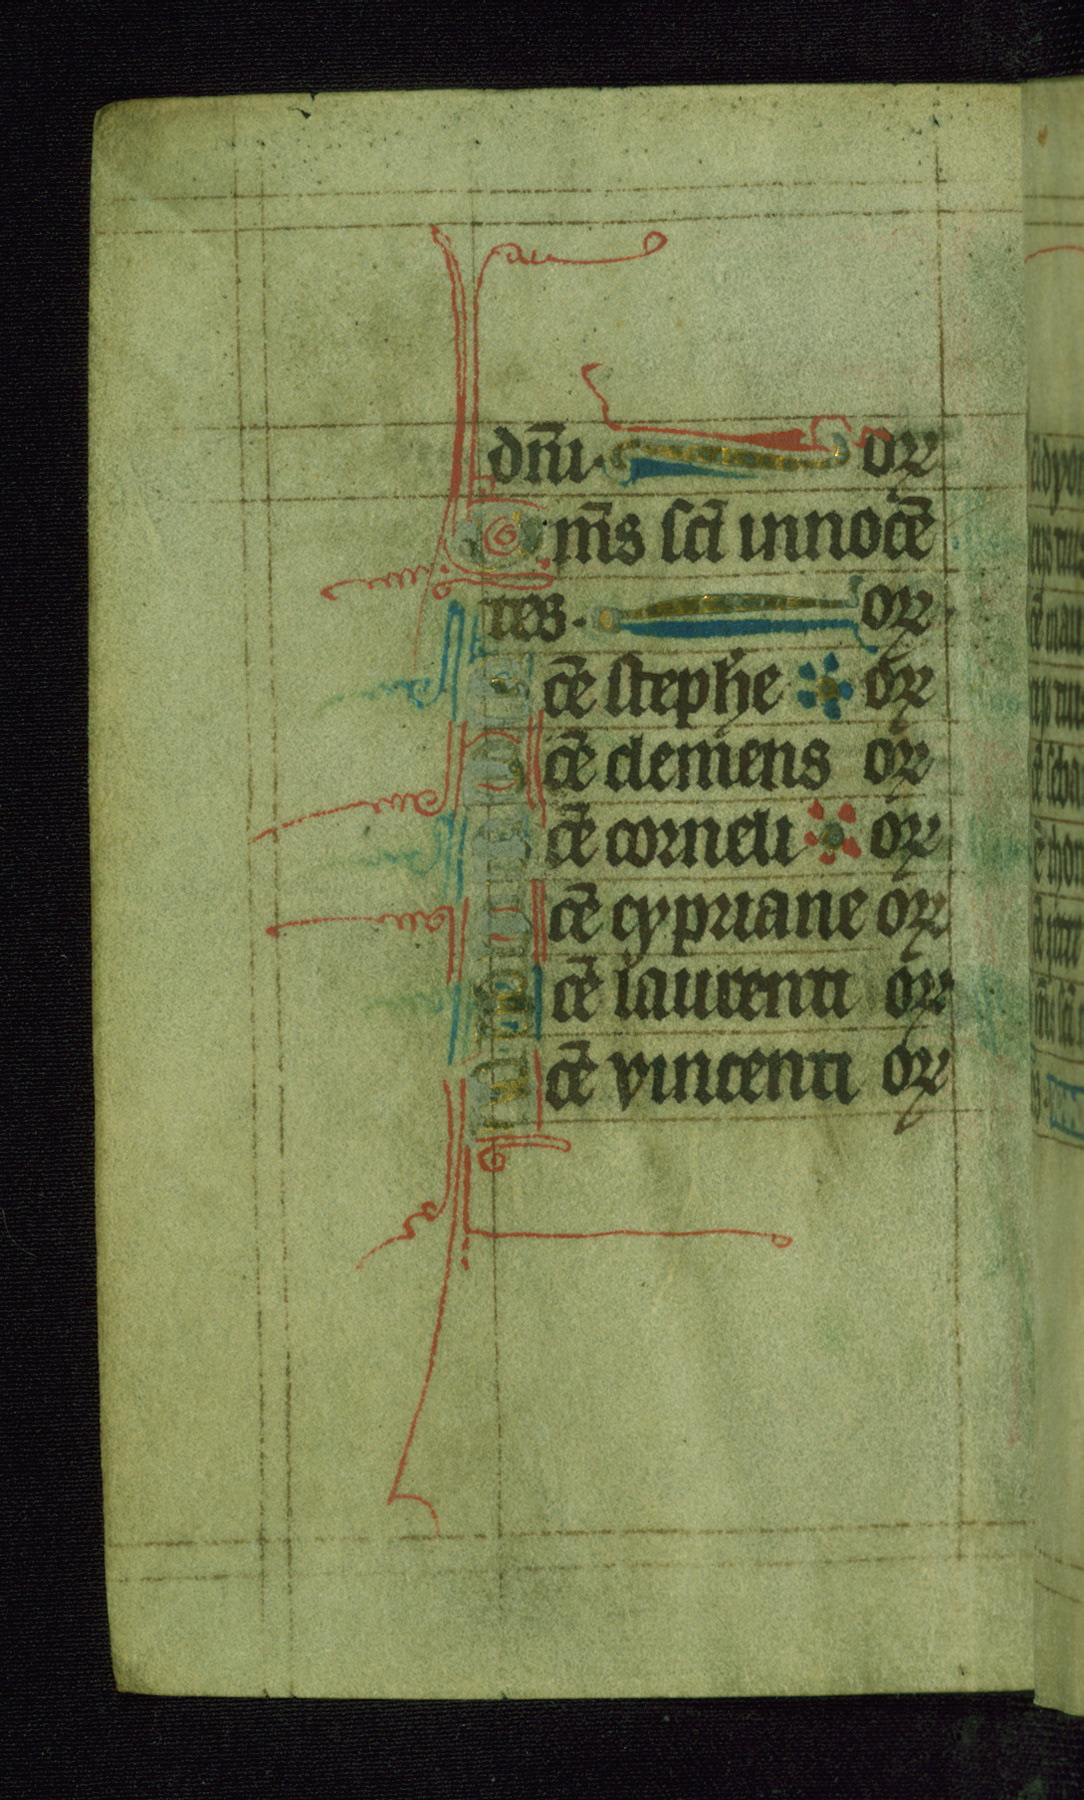 dn̄i. or
Om̄s sc̄i innocē
tes. or
Scē stephe or
Scē clemens or
Scē corneli or
Scē cypriane or
Scē laurenti or
Scē vincenti or